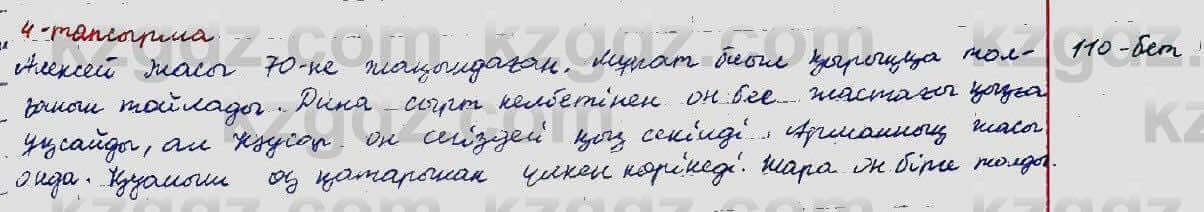 4-тапсырма
Алексей жасы 70-ке жақындаған. Мұрат биыл қырыққа тол- 110-бет
ғанын тойлады. Дина сырт келбетінен он бес жастағы қызға
ұқсайды, ал Жүсар он сегіздей қыз секілді. Арманның жасы
онда. Қуаныш өз қатарынан үлкен көрінеді. Жара он бірге толды.